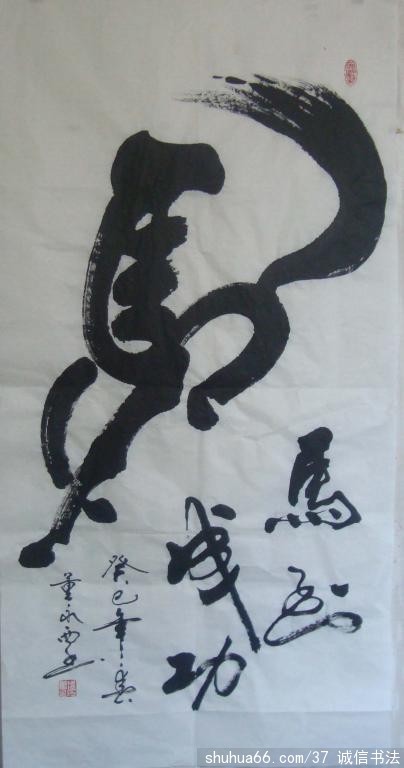 馬
馬到
成功
癸巳年春
董永西书
shuhua66.com/37 诚信书法